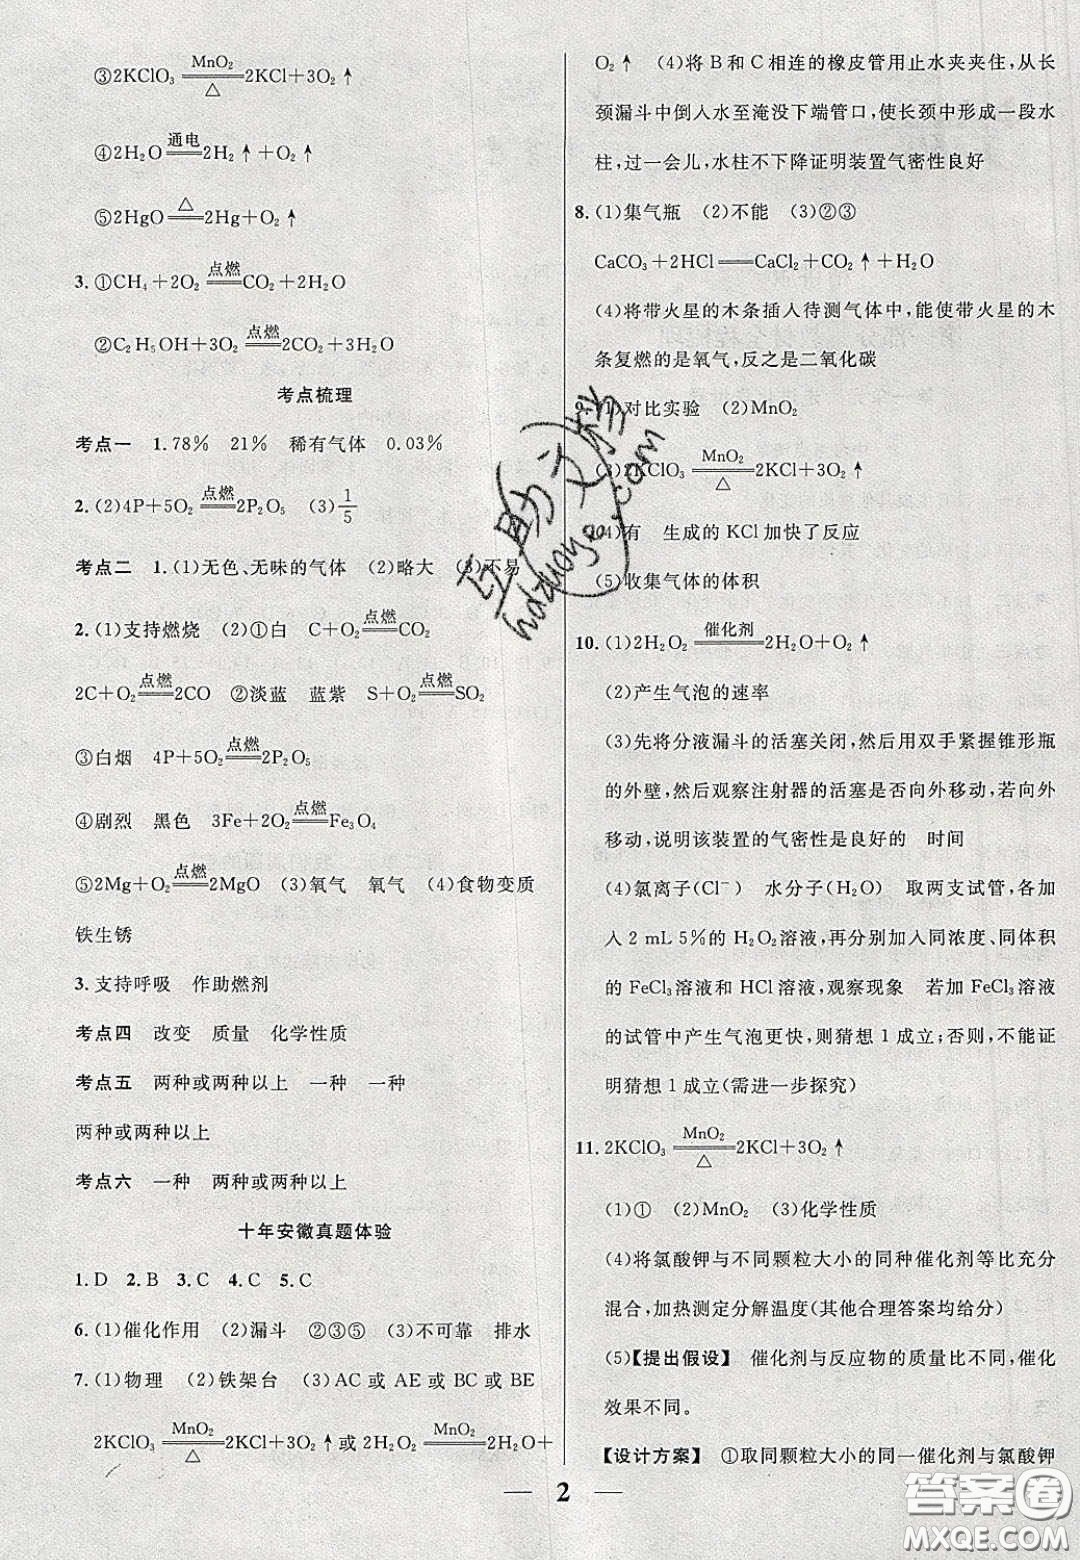 ③2KClO₃ =MnO₂/△= 2KCl+3O₂↑
④2H₂O =通电= 2H₂↑+O₂↑
⑤2HgO =△= 2Hg+O₂↑
3.①CH₄+2O₂ =点燃= CO₂+2H₂O
②C₂H₅OH+3O₂ =点燃= 2CO₂+3H₂O
考点梳理
考点一 1.78% 21% 稀有气体 0.03%
2.(2)4P+5O₂ =点燃= 2P₂O₅ (3)1/5
考点二 1.(1)无色、无味的气体 (2)略大 (3)不易
2.(1)支持燃烧 (2)①白 C+O₂ =点燃= CO₂
2C+O₂ =点燃= 2CO ②淡蓝 蓝紫 S+O₂ =点燃= SO₂
③白烟 4P+5O₂ =点燃= 2P₂O₅
④剧烈 黑色 3Fe+2O₂ =点燃= Fe₃O₄
⑤2Mg+O₂ =点燃= 2MgO (3)氧气 氧气 (4)食物变质
铁生锈
3.支持呼吸 作助燃剂
考点四 改变 质量 化学性质
考点五 两种或两种以上 一种 一种
两种或两种以上
考点六 一种 两种或两种以上
十年安徽真题体验
1.D 2.B 3.C 4.C 5.C
6.(1)催化作用 (2)漏斗 ②③⑤ (3)不可靠 排水
7.(1)物理 (2)铁架台 (3)AC或AE或BC或BE
2KClO₃ =MnO₂/△= 2KCl+3O₂↑或2H₂O₂ =MnO₂= 2H₂O+
O₂↑ (4)将B和C相连的橡皮管用止水夹夹住,从长
颈漏斗中倒人水至淹没下端管口,使长颈中形成一段水
柱,过一会儿,水柱不下降证明装置气密性良好
8.(1)集气瓶 (2)不能 (3)②③
CaCO₃+2HCl══CaCl₂+CO₂↑+H₂O
(4)将带火星的木条插人待测气体中,能使带火星的木
条复燃的是氧气,反之是二氧化碳
9.(1)对比实验 (2)MnO₂
(3)2KClO₃ =MnO₂/△= 2KCl+3O₂↑
(4)有 生成的KCl加快了反应
(5)收集气体的体积
10.(1)2H₂O₂ =催化剂= 2H₂O+O₂↑
(2)产生气泡的速率
(3)先将分液漏斗的活塞关闭,然后用双手紧握锥形瓶
的外壁,然后观察注射器的活塞是否向外移动,若向外
移动,说明该装置的气密性是良好的 时间
(4)氯离子(Cl⁻) 水分子(H₂O) 取两支试管,各加
入2 mL 5%的H₂O₂溶液,再分别加入同浓度、同体积
的FeCl₃溶液和HCl溶液,观察现象 若加FeCl₃溶液
的试管中产生气泡更快,则猜想1成立;否则,不能证
明猜想1成立(需进一步探究)
11.2KClO₃ =MnO₂/△= 2KCl+3O₂↑
(1)① (2)MnO₂ (3)化学性质
(4)将氯酸钾与不同颗粒大小的同种催化剂等比充分
混合,加热测定分解温度(其他合理答案均给分)
(5)【提出假设】 催化剂与反应物的质量比不同,催化
效果不同。
【设计方案】 ①取同颗粒大小的同一催化剂与氯酸钾
— 2 —
互助文档
hdzuoye.com
答案圈
MXQE.COM